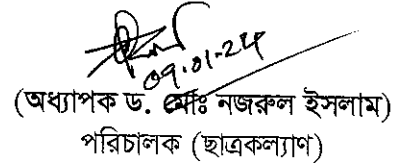 ০৭.০১.২৫
(অধ্যাপক ড. মোঃ নজরুল ইসলাম)
পরিচালক (ছাত্রকল্যাণ)